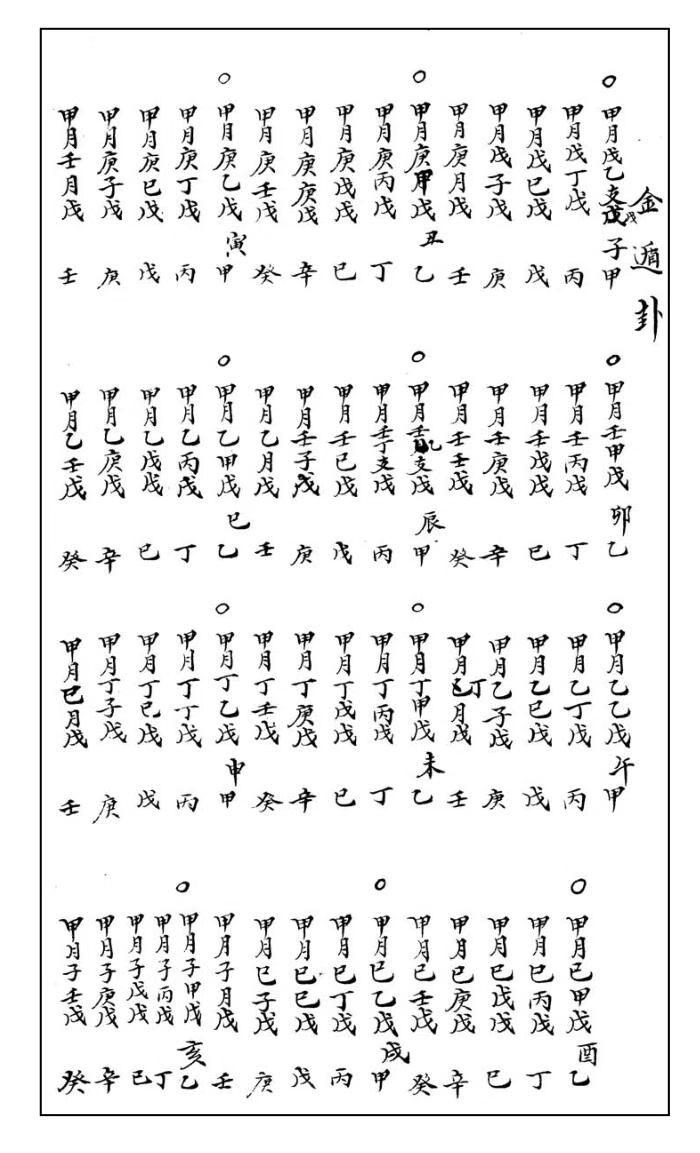 金遁卦
○甲月戊乙支戊子甲
甲月戊丁戊丙
甲月戊巳戊戊
甲月戊子戊庚
甲月庚月戊壬
○甲月庚甲戊丑乙
甲月庚丙戊丁
甲月庚戊戊巳
甲月庚庚戊辛
甲月庚壬戊癸
○甲月庚乙戊寅甲
甲月庚丁戊丙
甲月庚巳戊戊
甲月庚子戊庚
甲月壬月戊壬
○甲月壬甲戊卯乙
甲月壬丙戊丁
甲月壬戊戊巳
甲月壬庚戊辛
甲月壬壬戊癸
○甲月壬乙支戊辰甲
甲月壬丁支戊丙
甲月壬巳戊戊
甲月壬子戊庚
甲月乙月戊壬
○甲月乙甲戊巳乙
甲月乙丙戊丁
甲月乙戊戊巳
甲月乙庚戊辛
甲月乙壬戊癸
○甲月乙乙戊午甲
甲月乙丁戊丙
甲月乙巳戊戊
甲月乙子戊庚
甲月丁月戊壬
○甲月丁甲戊未乙
甲月丁丙戊丁
甲月丁戊戊巳
甲月丁庚戊辛
甲月丁壬戊癸
○甲月丁乙戊申甲
甲月丁丁戊丙
甲月丁巳戊戊
甲月丁子戊庚
甲月巳月戊壬
○甲月巳甲戊酉乙
甲月巳丙戊丁
甲月巳戊戊巳
甲月巳庚戊辛
甲月巳壬戊癸
○甲月巳乙戊戌甲
甲月巳丁戊丙
甲月巳巳戊戊
甲月巳子戊庚
甲月子月戊壬
○甲月子甲戊亥乙
甲月子丙戊丁
甲月子戊戊巳
甲月子庚戊辛
甲月子壬戊癸